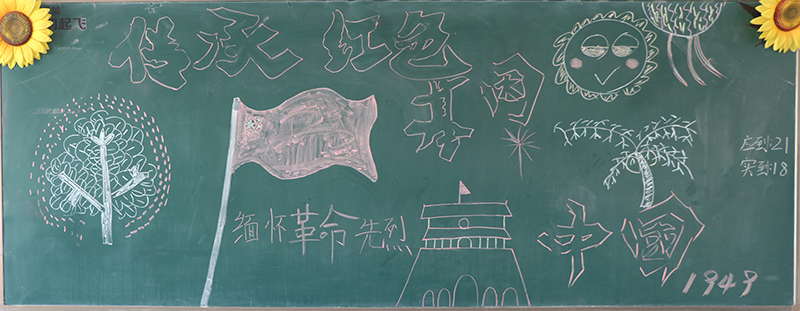 起飞
传承 红色
基因
应到:21
实到:18
缅怀革命先烈
中國
1949